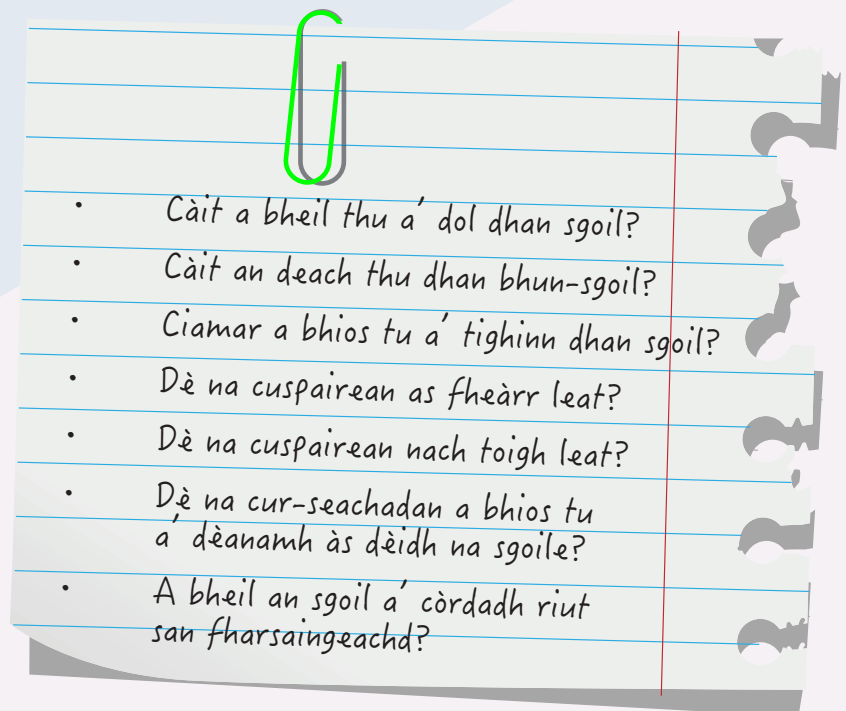 • Càit a bheil thu a’ dol dhan sgoil?
• Càit an deach thu dhan bhun-sgoil?
• Ciamar a bhios tu a’ tighinn dhan sgoil?
• Dè na cuspairean as fheàrr leat?
• Dè na cuspairean nach toigh leat?
• Dè na cur-seachadan a bhios tu
a’ dèanamh às dèidh na sgoile?
• A bheil an sgoil a’ còrdadh riut
san fharsaingeachd?